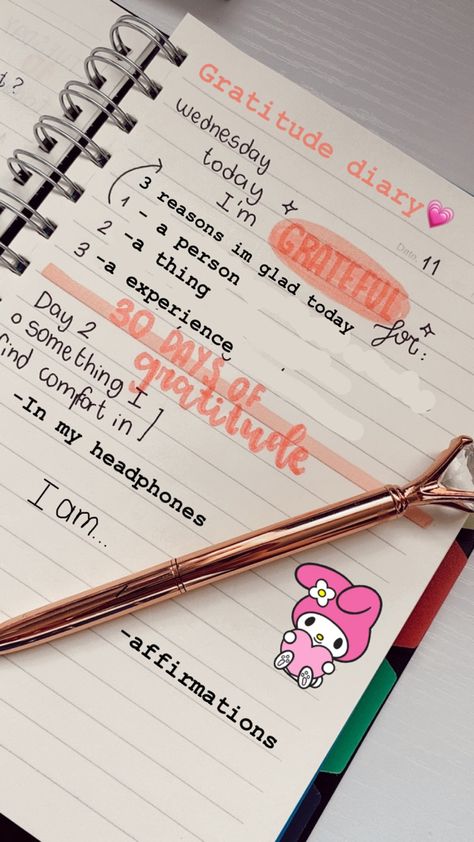 1?
Gratitude diary
Date: 11
wednesday
today
I'm
GRATEFUL
for:
3 reasons im glad today
1 - a person
2 -a thing
3 -a experience
30 DAYS OF
gratitude
Day 2
something I
find comfort in ]
-In my headphones
I am...
-affirmations